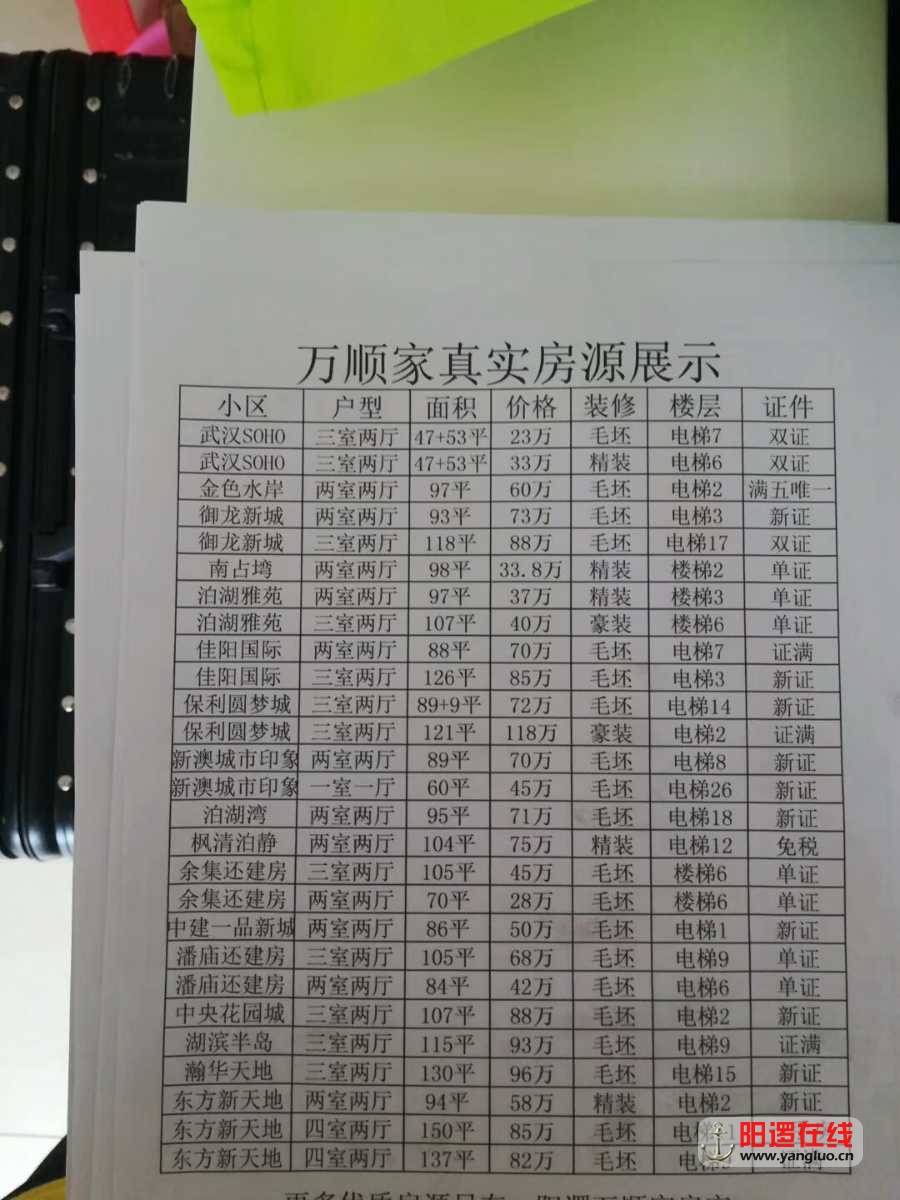 万顺家真实房源展示
小区 户型 面积 价格 装修 楼层 证件
武汉SOHO 三室两厅 47+53平 23万 毛坯 电梯7 双证
武汉SOHO 三室两厅 47+53平 33万 精装 电梯6 双证
金色水岸 两室两厅 97平 60万 毛坯 电梯2 满五唯一
御龙新城 两室两厅 93平 73万 毛坯 电梯3 新证
御龙新城 三室两厅 118平 88万 毛坯 电梯17 双证
南占塆 两室两厅 98平 33.8万 精装 楼梯2 单证
泊湖雅苑 两室两厅 97平 37万 精装 楼梯3 单证
泊湖雅苑 三室两厅 107平 40万 豪装 楼梯6 单证
佳阳国际 两室两厅 88平 70万 毛坯 电梯7 证满
佳阳国际 三室两厅 126平 85万 毛坯 电梯3 新证
保利圆梦城 三室两厅 89+9平 72万 毛坯 电梯14 新证
保利圆梦城 三室两厅 121平 118万 豪装 电梯2 证满
新澳城市印象 两室两厅 89平 70万 毛坯 电梯8 新证
新澳城市印象 一室一厅 60平 45万 毛坯 电梯26 新证
泊湖湾 两室两厅 95平 71万 毛坯 电梯18 新证
枫清泊静 两室两厅 104平 75万 精装 电梯12 免税
余集还建房 三室两厅 105平 45万 毛坯 楼梯6 单证
余集还建房 两室两厅 70平 28万 毛坯 楼梯6 单证
中建一品新城 两室两厅 86平 50万 毛坯 电梯1 新证
潘庙还建房 三室两厅 105平 68万 毛坯 电梯9 单证
潘庙还建房 两室两厅 84平 42万 毛坯 电梯6 单证
中央花园城 三室两厅 107平 88万 毛坯 电梯2 新证
湖滨半岛 三室两厅 115平 93万 毛坯 电梯9 证满
瀚华天地 三室两厅 130平 96万 毛坯 电梯15 新证
东方新天地 两室两厅 94平 58万 精装 电梯2 新证
东方新天地 四室两厅 150平 85万 毛坯
东方新天地 四室两厅 137平 82万 毛坯 证满
阳逻在线
www.yangluo.cn